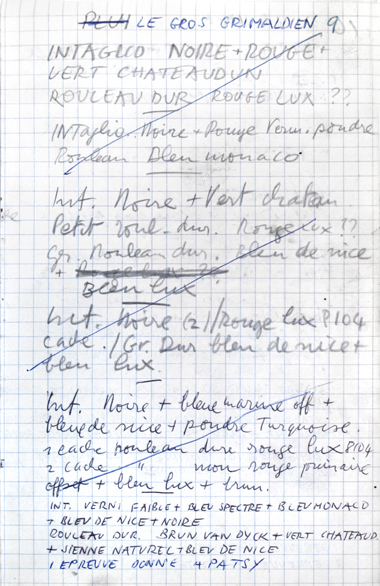 LE GROS GRIMALDIEN 9
INTAGLIO NOIRE + ROUGE +
VERT CHATEAUDUN
ROULEAU DUR ROUGE LUX ??
INTaglio. Noire + Rouge Verm. poudre
Rouleau Bleu monaco
Int. Noire + Vert chateau
Petit roul. dur. Rouge lux ??
Gr. Rouleau dur. Bleu de nice
+
Bleu lux
Int. Noire (2) // Rouge lux 8104
cade. / Gr. Dur bleu de nice +
bleu lux.
Int. Noire + bleu marine off +
bleu de nice + poudre Turquoise.
1 cadre rouleau dure rouge lux 8104
2 cadre " mon rouge primaire
+ bleu lux + brun.
INT. VERNI FAIBLE + BLEU SPECTRE + BLEU MONACO
+ BLEU DE NICE + NOIRE
ROULEAU DUR. BRUN VAN DYCK + VERT CHATEAUD
+ SIENNE NATUREL + BLEU DE NICE
1 EPREUVE DONNÉ A PATSY